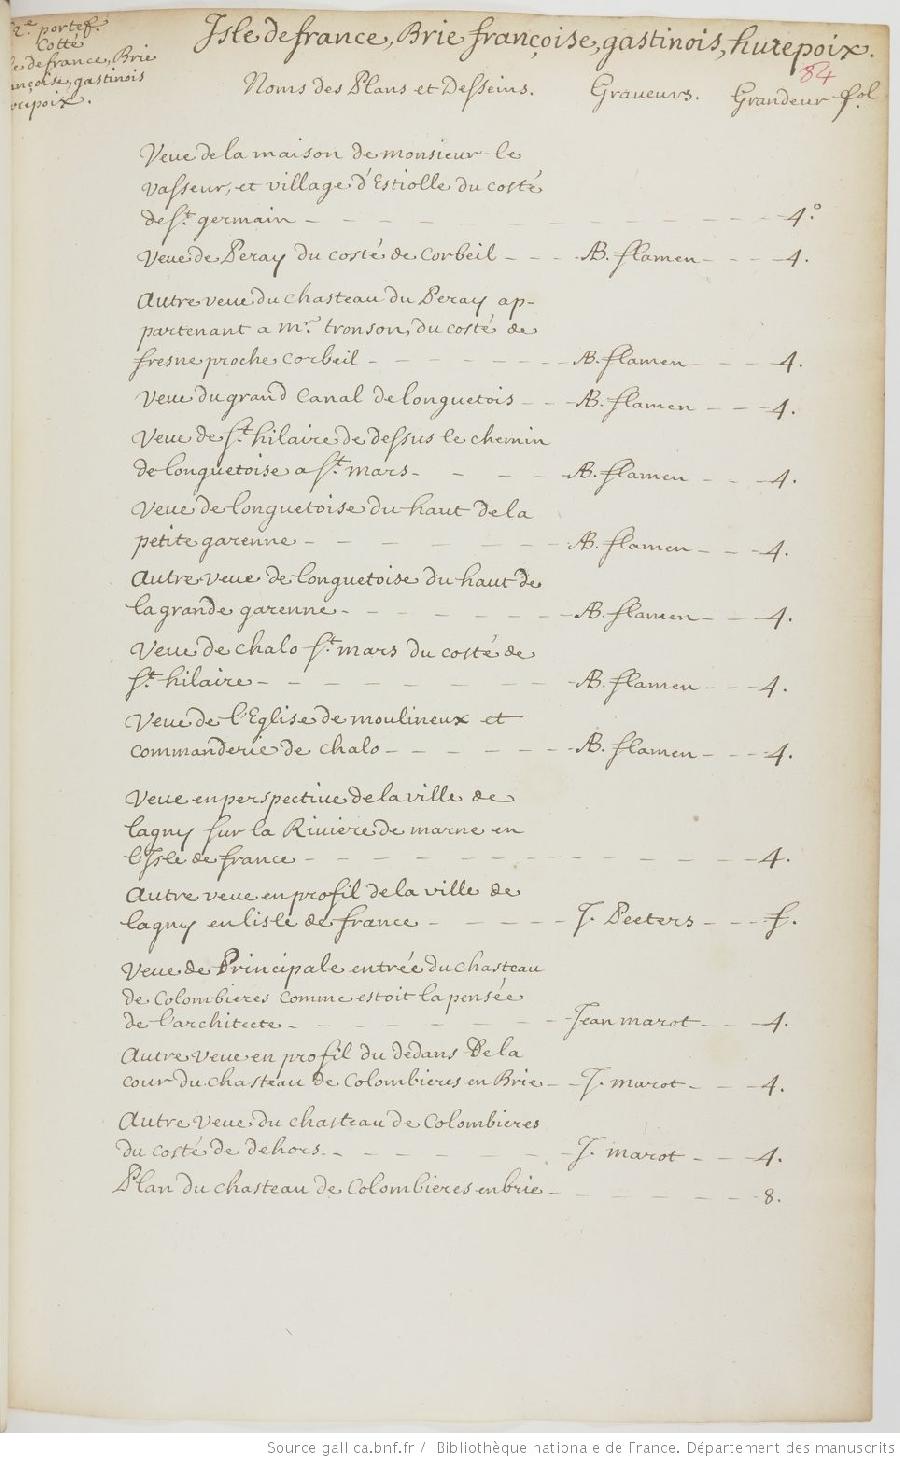 2.e portef.
Cotté
le de france, Brie
ançoise, gastinois
urepoix.
Isle de france, Brie françoise, gastinois, hurepoix.
84
Noms des Plans et Desseins. Graveurs. Grandeur fol
Veue de la maison de monsieur le
Vasseur, et village d'Estiolle du costé
de st. germain - - - - 4.°
Veue de Peray du costé de Corbeil - - - AB. flamen - - - 4.
Autre veue du chasteau du Peray ap-
partenant a mr. tronson, du costé de
fresne proche Corbeil - - - AB. flamen - - - 4.
Veue du grand Canal de longuetois - - - AB. flamen - - - 4.
Veue de st. hilaire de dessus le chemin
de longuetoise a st. mars - - - AB. flamen - - - 4.
Veue de longuetoise du haut de la
petite garenne - - - AB. flamen - - - 4.
Autre veue de longuetoise du haut de
la grande garenne - - - AB. flamen - - - 4.
Veue de chalo st. mars du costé de
st. hilaire - - - AB. flamen - - - 4.
Veue de l'Eglise de moulineux et
commanderie de chalo - - - AB. flamen - - - 4.
Veue en perspective de la ville de
lagny sur la Riviere de marne en
l'Isle de france - - - 4.
Autre veue en profil de la ville de
lagny en lisle de france - - - J. Peeters - - - f.
Veue de Principale entrée du chasteau
de Colombieres comme estoit la pensée
de l'architecte - - - Jean marot - - - 4.
Autre Veue en profil du dedans De la
cour du chasteau de Colombieres en Brie - - - J. marot - - - 4.
Autre Veue du chasteau de Colombieres
du costé de dehors. - - - J. marot - - - 4.
Plan du chasteau de Colombieres en brie - - - 8.
Source gallica.bnf.fr / Bibliothèque nationale de France. Département des manuscrits